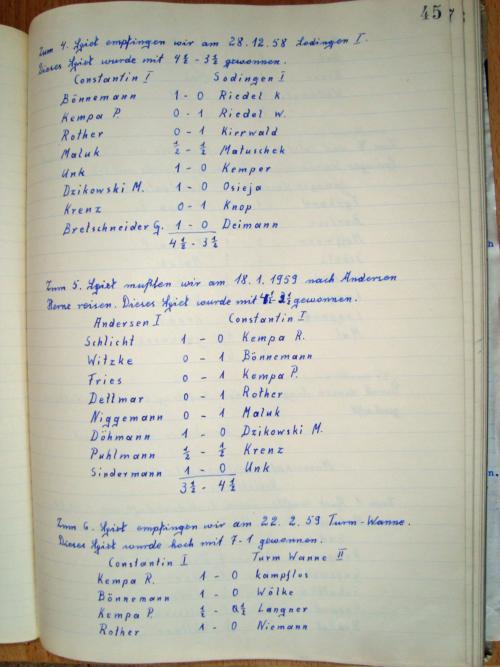 45
Zum 4. Spiel empfingen wir am 28.12.58 Sodingen I.
Dieses Spiel wurde mit 4½ - 3½ gewonnen.
Constantin I Sodingen I
Bönnemann 1 - 0 Riedel K.
Kempa P. 0 - 1 Riedel W.
Rother 0 - 1 Kirrwald
Maluk ½ - ½ Matuschek
Unk 1 - 0 Kemper
Dzikowski M. 1 - 0 Osieja
Krenz 0 - 1 Knop
Bretschneider G. 1 - 0 Deimann
4½ - 3½
Zum 5. Spiel mußten wir am 18.1.1959 nach Andersen
Herne reisen. Dieses Spiel wurde mit gewonnen.
Andersen I Constantin I
Schlicht 1 - 0 Kempa R.
Witzke 0 - 1 Bönnemann
Fries 0 - 1 Kempa P.
Dellmar 0 - 1 Rother
Niggemann 0 - 1 Maluk
Döhmann 1 - 0 Dzikowski M.
Puhlmann ½ - ½ Krenz
Sindermann 1 - 0 Unk
3½ - 4½
Zum 6. Spiel empfingen wir am 22.2.59 Turm-Wanne.
Dieses Spiel wurde hoch mit 7-1 gewonnen.
Constantin I Turm Wanne II
Kempa R. 1 - 0 kampflos
Bönnemann 1 - 0 Wölke
Kempa P. ½ - ½ Langner
Rother 1 - 0 Niemann